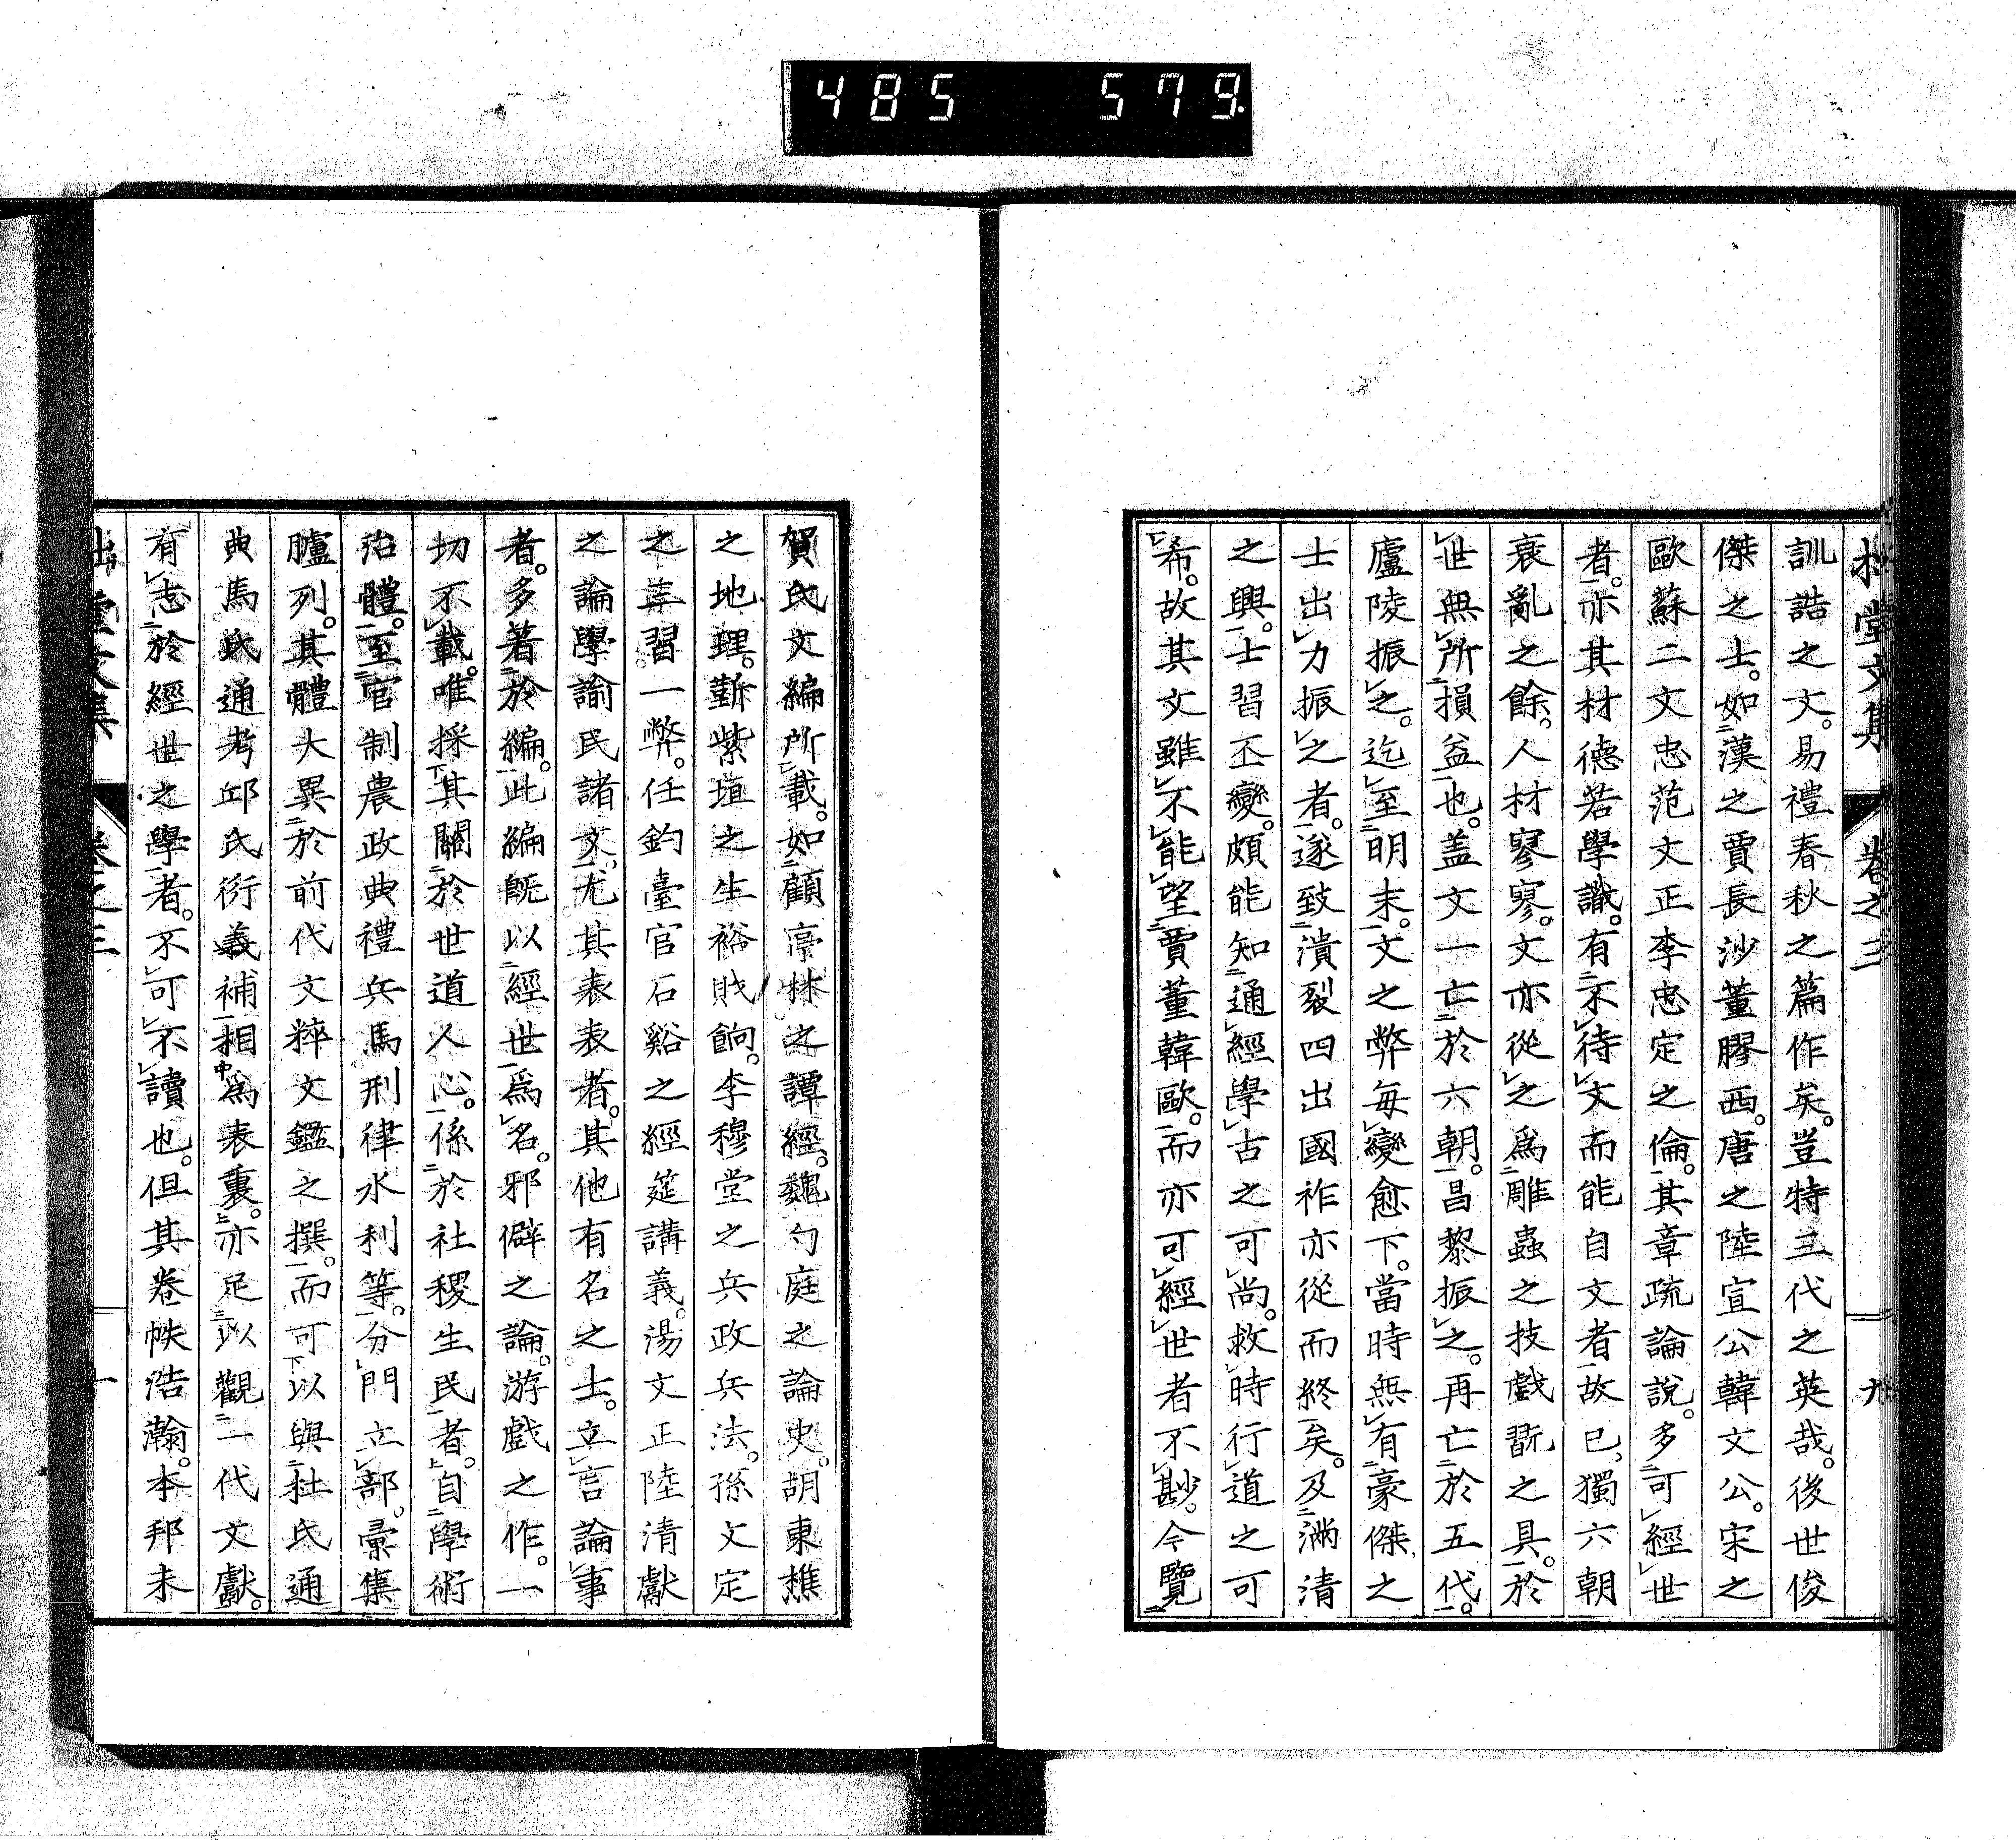 485 579.
拙堂文集 卷之三 九
訓誥之文。易禮春秋之篇作矣。豈特三代之英哉。後世俊
傑之士。如漢之賈長沙董膠西。唐之陸宣公韓文公。宋之
歐蘇二文忠范文正李忠定之倫。其章疏論說。多可經世
者。亦其材德若學識。有不待文而能自文者故已、獨六朝
衰亂之餘。人材寥寥。文亦從之為雕蟲之技戲翫之具。於
世無所損益也。盖文一亡於六朝。昌黎振之。再亡於五代。
廬陵振之。迄至明末。文之弊毎變愈下。當時無有豪傑之
士出力振之者。遂致潰裂四出國祚亦從而終矣。及滿清
之興。士習丕變。頗能知通經學古之可尚。救時行道之可
希。故其文雖不能望賈董韓歐。而亦可經世者不尠。今覽
賀氏文編所載。如顧亭林之譚經。魏勺庭之論史。胡東樵
之地理。蘄紫垣之生裕戝餉。李穆堂之兵政兵法。孫文定
之三習一弊。任釣臺官石谿之經筵講義。湯文正陸清獻
之論學諭民諸文。尤其表表者。其他有名之士。立言論事
者。多著於編。此編既以經世爲名。邪僻之論。游戲之作。一
切不載。唯採其關於世道人心。係於社稷生民者。自學術
治體。至官制農政典禮兵馬刑律水利等。分門立部。彙集
臚列。其體大異於前代文粹文鑑之撰。而可以與杜氏通
典馬氏通考邱氏衍義補相爲表裏。亦足以觀一代文獻。
有志於經世之學者。不可不讀也。但其卷帙浩瀚。本邦未
堂文集 卷之三